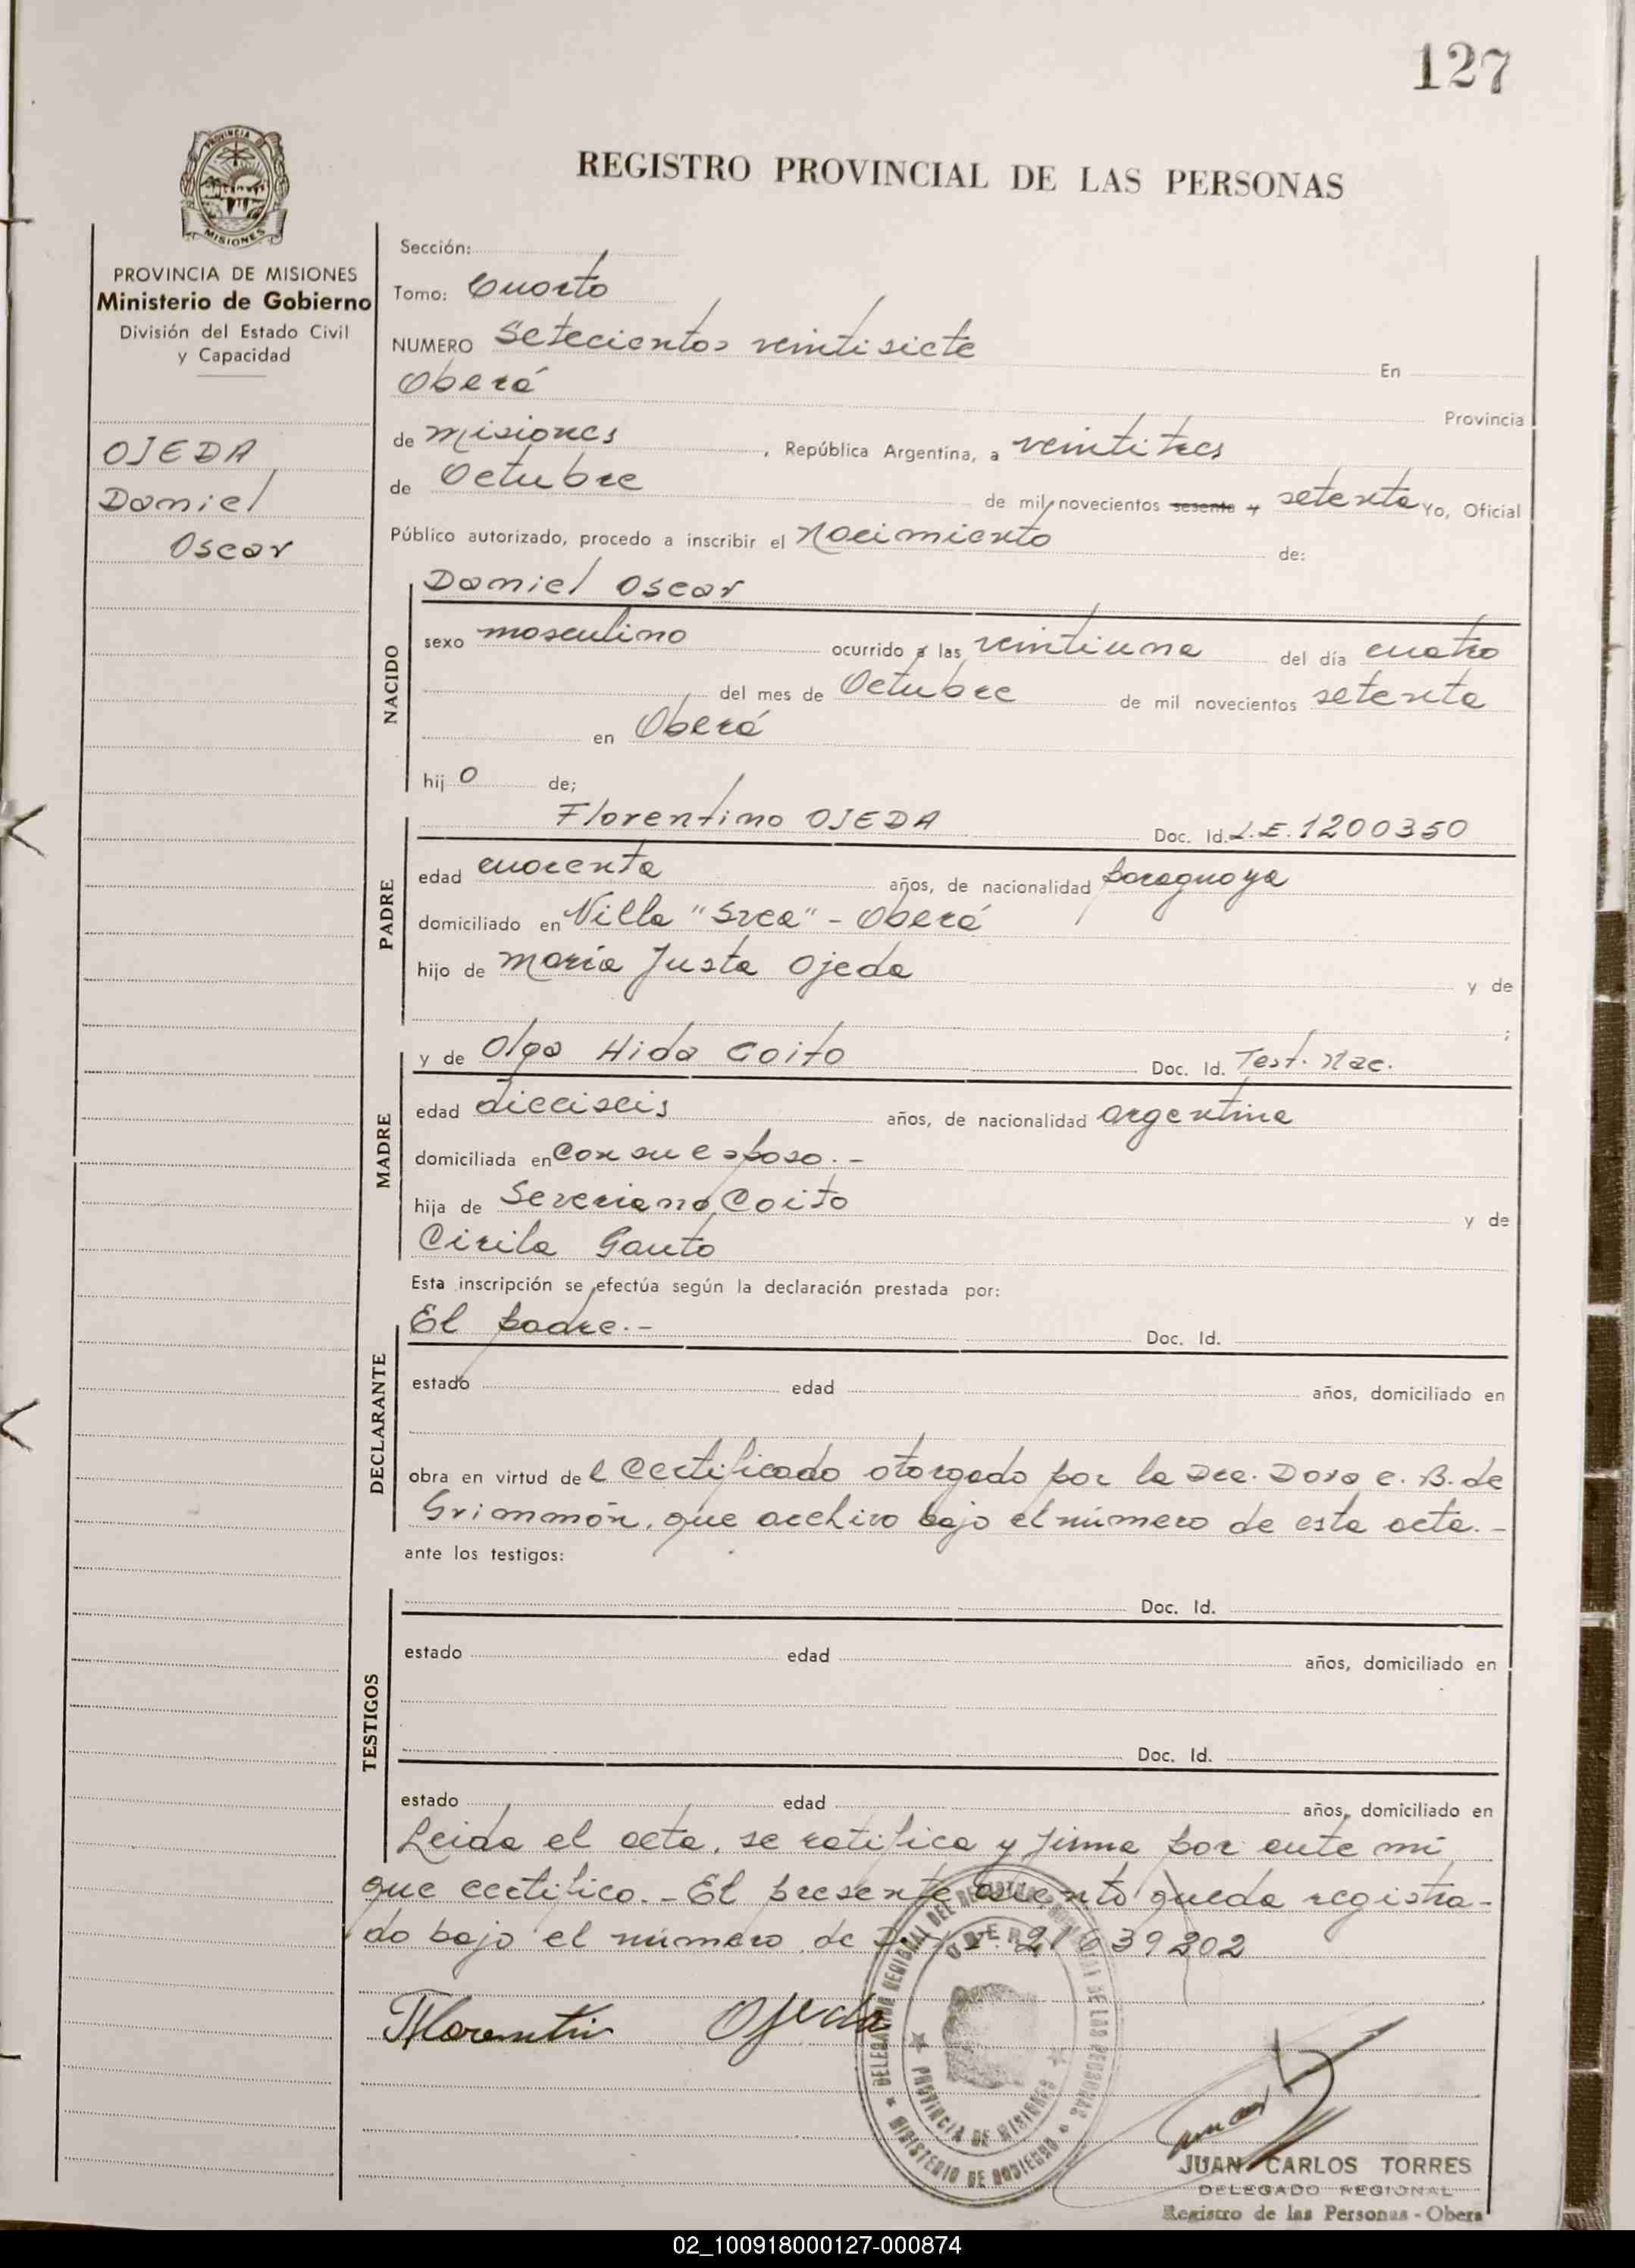 127
PROVINCIA DE
MISIONES
REGISTRO PROVINCIAL DE LAS PERSONAS
PROVINCIA DE MISIONES
Ministerio de Gobierno
División del Estado Civil
y Capacidad
OJEDA
Daniel
Oscar
Sección:
Tomo: Cuarto
NUMERO Setecientos veintisiete En
Oberá Provincia
de Misiones, República Argentina, a veintitres
de Octubre de mil novecientos sesenta y setenta Yo, Oficial
Público autorizado, procedo a inscribir el Nacimiento de:
NACIDO
Daniel Oscar
sexo masculino ocurrido a las veintiuna del día cuatro
del mes de Octubre de mil novecientos setenta
en Oberá
hijo de;
PADRE
Florentino OJEDA Doc. Id. L.E. 1200350
edad cuarenta años, de nacionalidad paraguaya
domiciliado en Villa "Svea" - Oberá
hijo de María Justa Ojeda y de
;
MADRE
y de Olga Hida Coito Doc. Id. Test. Nac.
edad dieciseis años, de nacionalidad argentina
domiciliada en Con su esposo.-
hija de Severiano Coito y de
Cirila Gauto
Esta inscripción se efectúa según la declaración prestada por:
DECLARANTE
El padre.- Doc. Id.
estado edad años, domiciliado en
obra en virtud del Certificado otorgado por la Dra. Dora e. B. de
Grimmón, que archivo bajo el número de esta acta.-
ante los testigos:
TESTIGOS
Doc. Id.
estado edad años, domiciliado en
Doc. Id.
estado edad años, domiciliado en
Leida el acta, se ratifica y firma por ante mi
que certifico.- El presente asiento queda registra-
do bajo el número de 21639202
Florentin Ojeda
DELEGACION REGIONAL DEL REGISTRO PROVINCIAL DE LAS PERSONAS
OBERA
PROVINCIA DE MISIONES
MINISTERIO DE GOBIERNO
JUAN CARLOS TORRES
DELEGADO REGIONAL
Registro de las Personas - Oberá
02_100918000127-000874